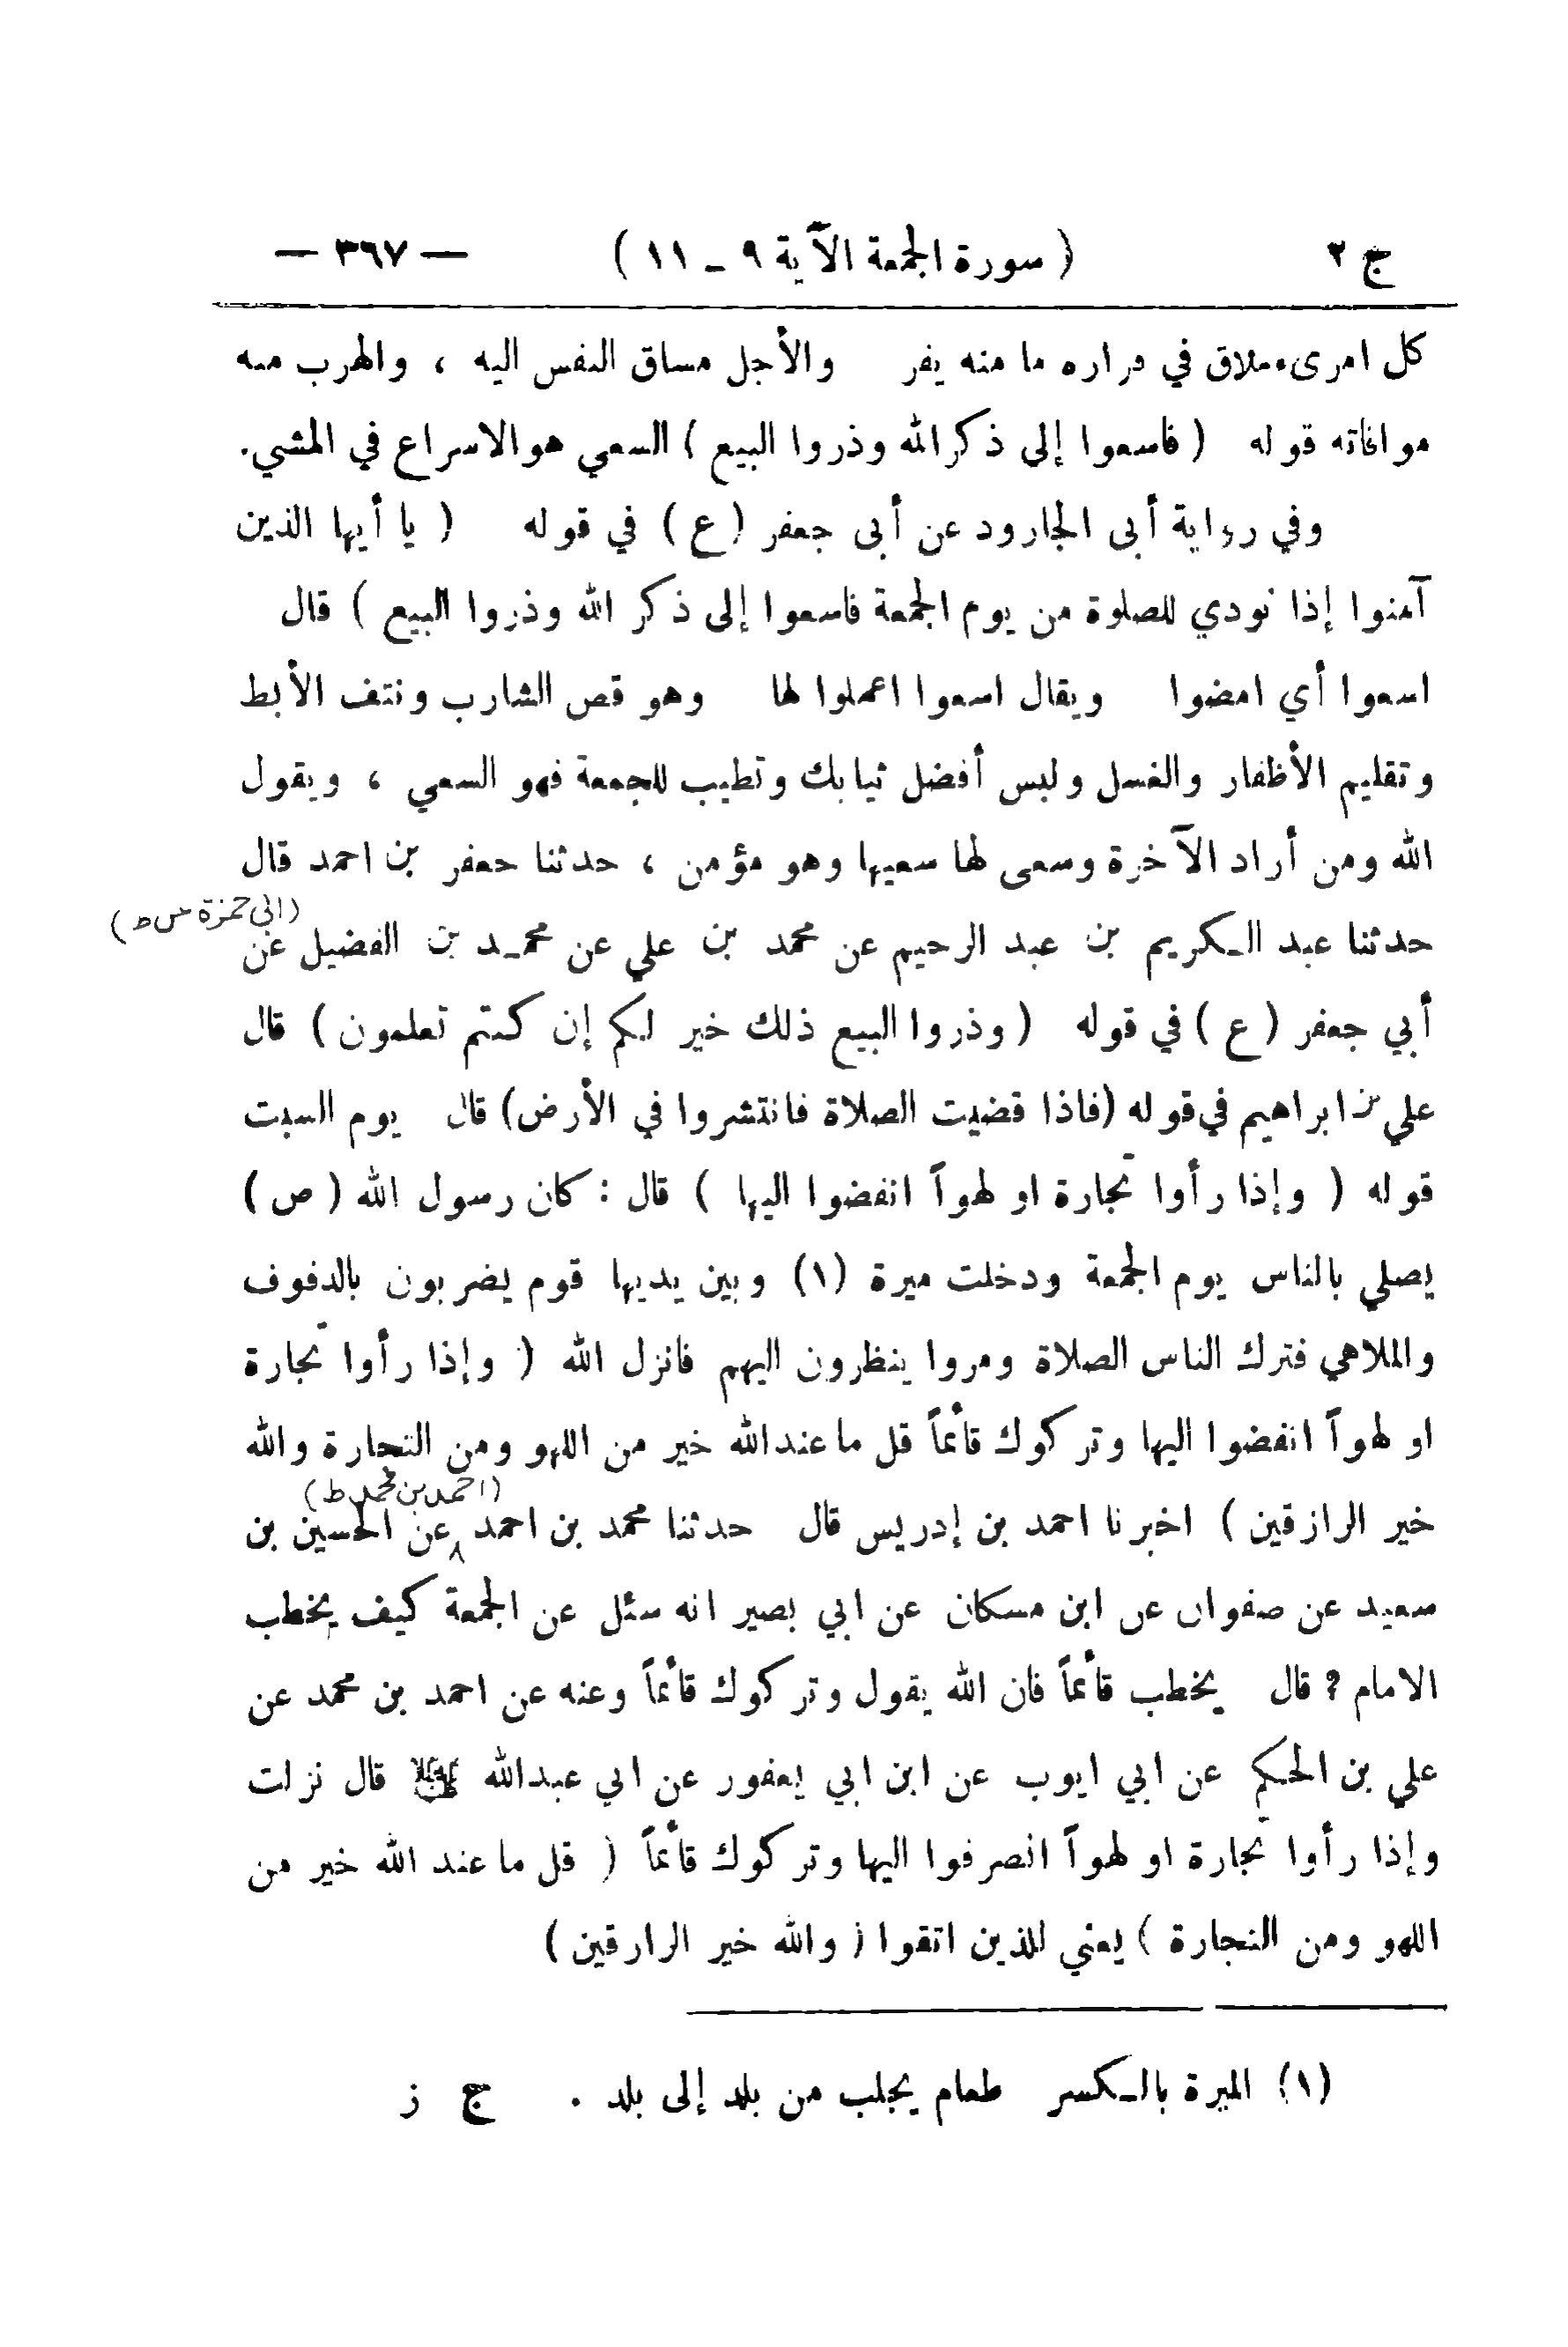 ج ٢ ( سورة الجمعة الآية ٩ ـ ١١ ) — ٣٦٧ —
كل امرىء ملاق في فراره ما منه يفر والأجل مساق النفس اليه ، والهرب منه
موافاته قوله ( فاسعوا إلى ذكر الله وذروا البيع ) السعي هو الاسراع في المشي .
وفي رواية أبى الجارود عن أبى جعفر ( ع ) في قوله ( يا أيها الذين
آمنوا إذا نودي للصلوة من يوم الجمعة فاسعوا إلى ذكر الله وذروا البيع ) قال
اسعوا أي امضوا ويقال اسعوا اعملوا لها وهو قص الشارب ونتف الأبط
وتقليم الأظفار والغسل ولبس أفضل ثيابك وتطيب للجمعة فهو السعي ، ويقول
الله ومن أراد الآخرة وسعى لها سعيها وهو مؤمن ، حدثنا جعفر بن احمد قال
(ابي حمزة س ط)
حدثنا عبد الكريم بن عبد الرحيم عن محمد بن علي عن محمد بن الفضيل عن
أبي جعفر ( ع ) في قوله ( وذروا البيع ذلك خير لكم إن كنتم تعلمون ) قال
علي بن ابراهيم في قوله ( فاذا قضيت الصلاة فانتشروا في الأرض ) قال يوم السبت
قوله ( وإذا رأوا تجارة او لهواً انفضوا اليها ) قال : كان رسول الله ( ص )
يصلي بالناس يوم الجمعة ودخلت ميرة (١) وبين يديها قوم يضربون بالدفوف
والملاهي فترك الناس الصلاة ومروا ينظرون اليهم فانزل الله ( وإذا رأوا تجارة
او لهواً انفضوا اليها وتركوك قائماً قل ما عند الله خير من اللهو ومن التجارة والله
(احمد بن محمد ط)
خير الرازقين ) اخبرنا احمد بن إدريس قال حدثنا محمد بن احمد عن الحسين بن
سعيد عن صفوان عن ابن مسكان عن ابي بصير انه سئل عن الجمعة كيف يخطب
الامام ؟ قال يخطب قائماً فان الله يقول وتركوك قائماً وعنه عن احمد بن محمد عن
علي بن الحكم عن ابي ايوب عن ابن ابي يعفور عن ابي عبدالله عليه السلام قال نزلت
وإذا رأوا تجارة او لهواً انصرفوا اليها وتركوك قائماً ( قل ما عند الله خير من
اللهو ومن التجارة ) يعني للذين اتقوا ( والله خير الرازقين )
(١) الميرة بالكسر طعام يجلب من بلد إلى بلد . ج ز